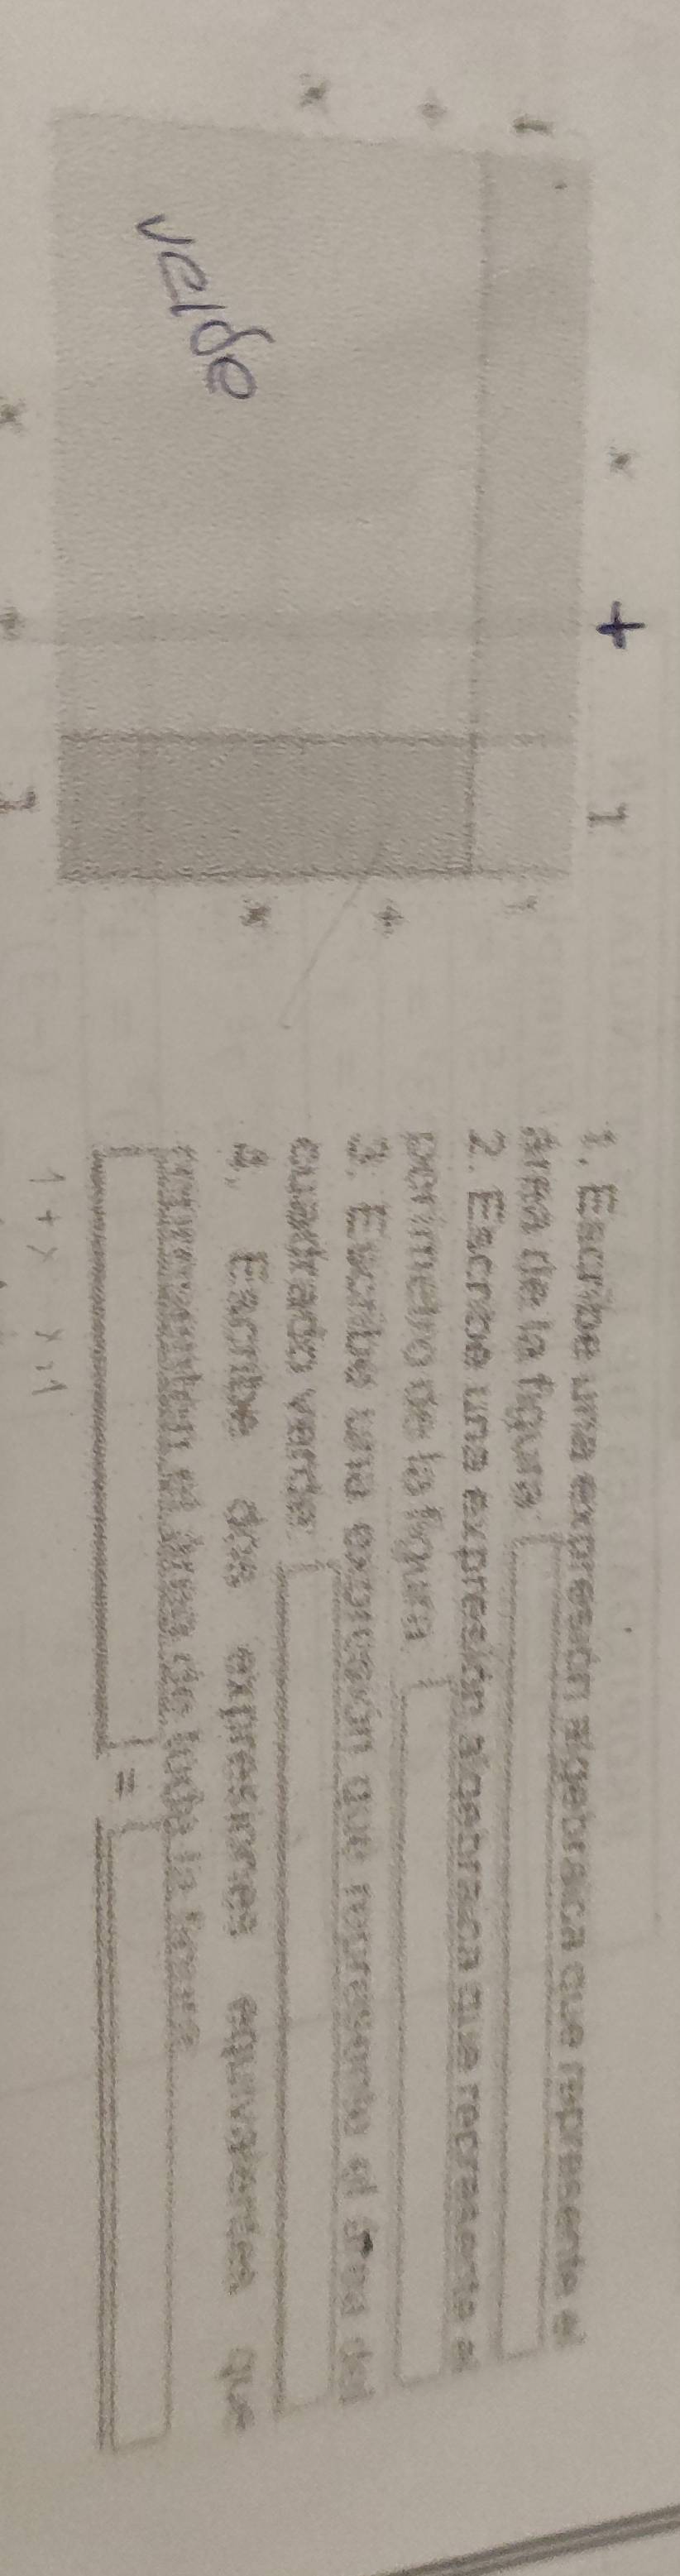 x + 1
1
+
x
verde
1
+
x
x + 1
1. Escribe una expresión algebraica que represente el
área de la figura:
2. Escribe una expresión algebraica que represente el
perímetro de la figura:
3. Escribe una expresión que represente el área del
cuadrado verde:
4. Escribe dos expresiones equivalentes que
representen el área de toda la figura
=
1 + x x.1